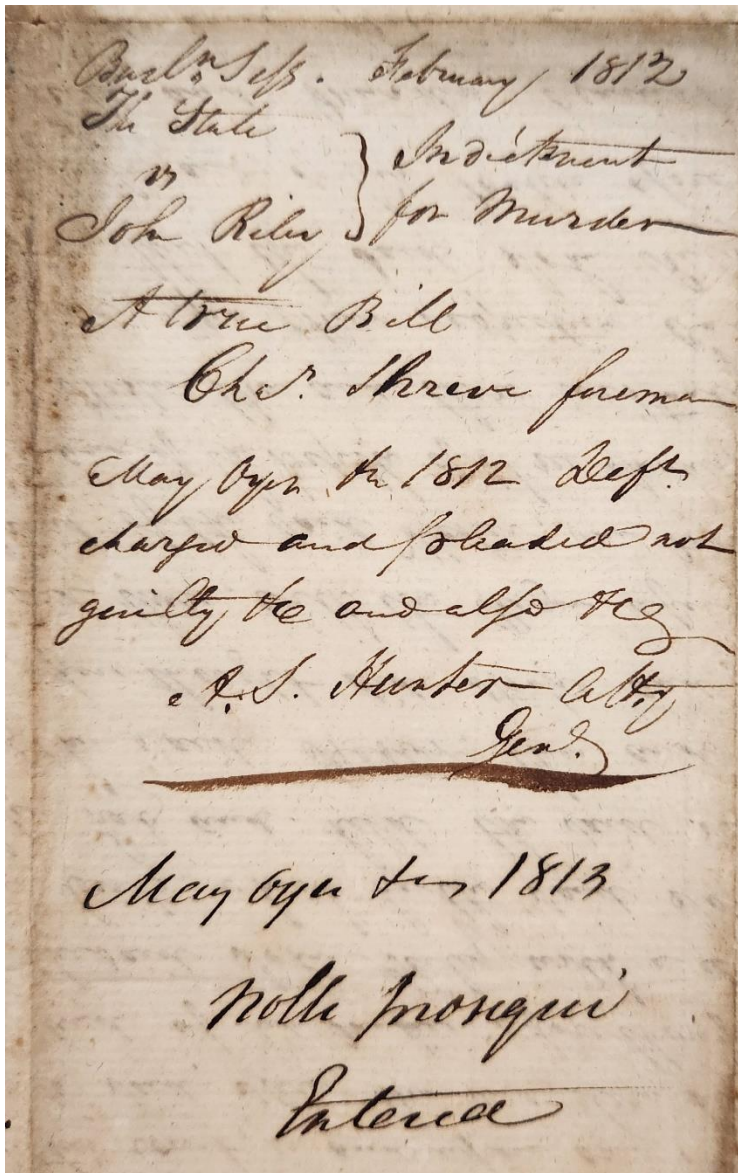 Burln. Sess. February 1812
The State
vs
John Riley } Indictment for Murder
A true Bill
Chas. Shreve foreman
May Oyer &c 1812 Deft.
charged and pleaded not
guilty &c and also &c
A. S. Hunter Atty
Genl.
May Oyer &c 1813
Nolle prosequi
Entered